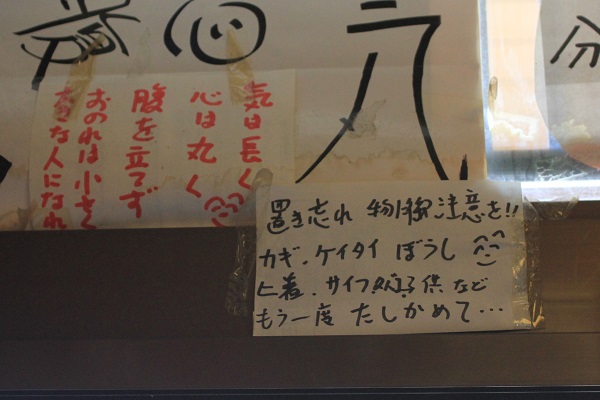 気は長く
心は丸く
腹を立てず
おのれは小さく
大きな人になれ
置き忘れ 注意を!!
カギ、ケイタイ ぼうし
上着、サイフ、子供など
もう一度 たしかめて…